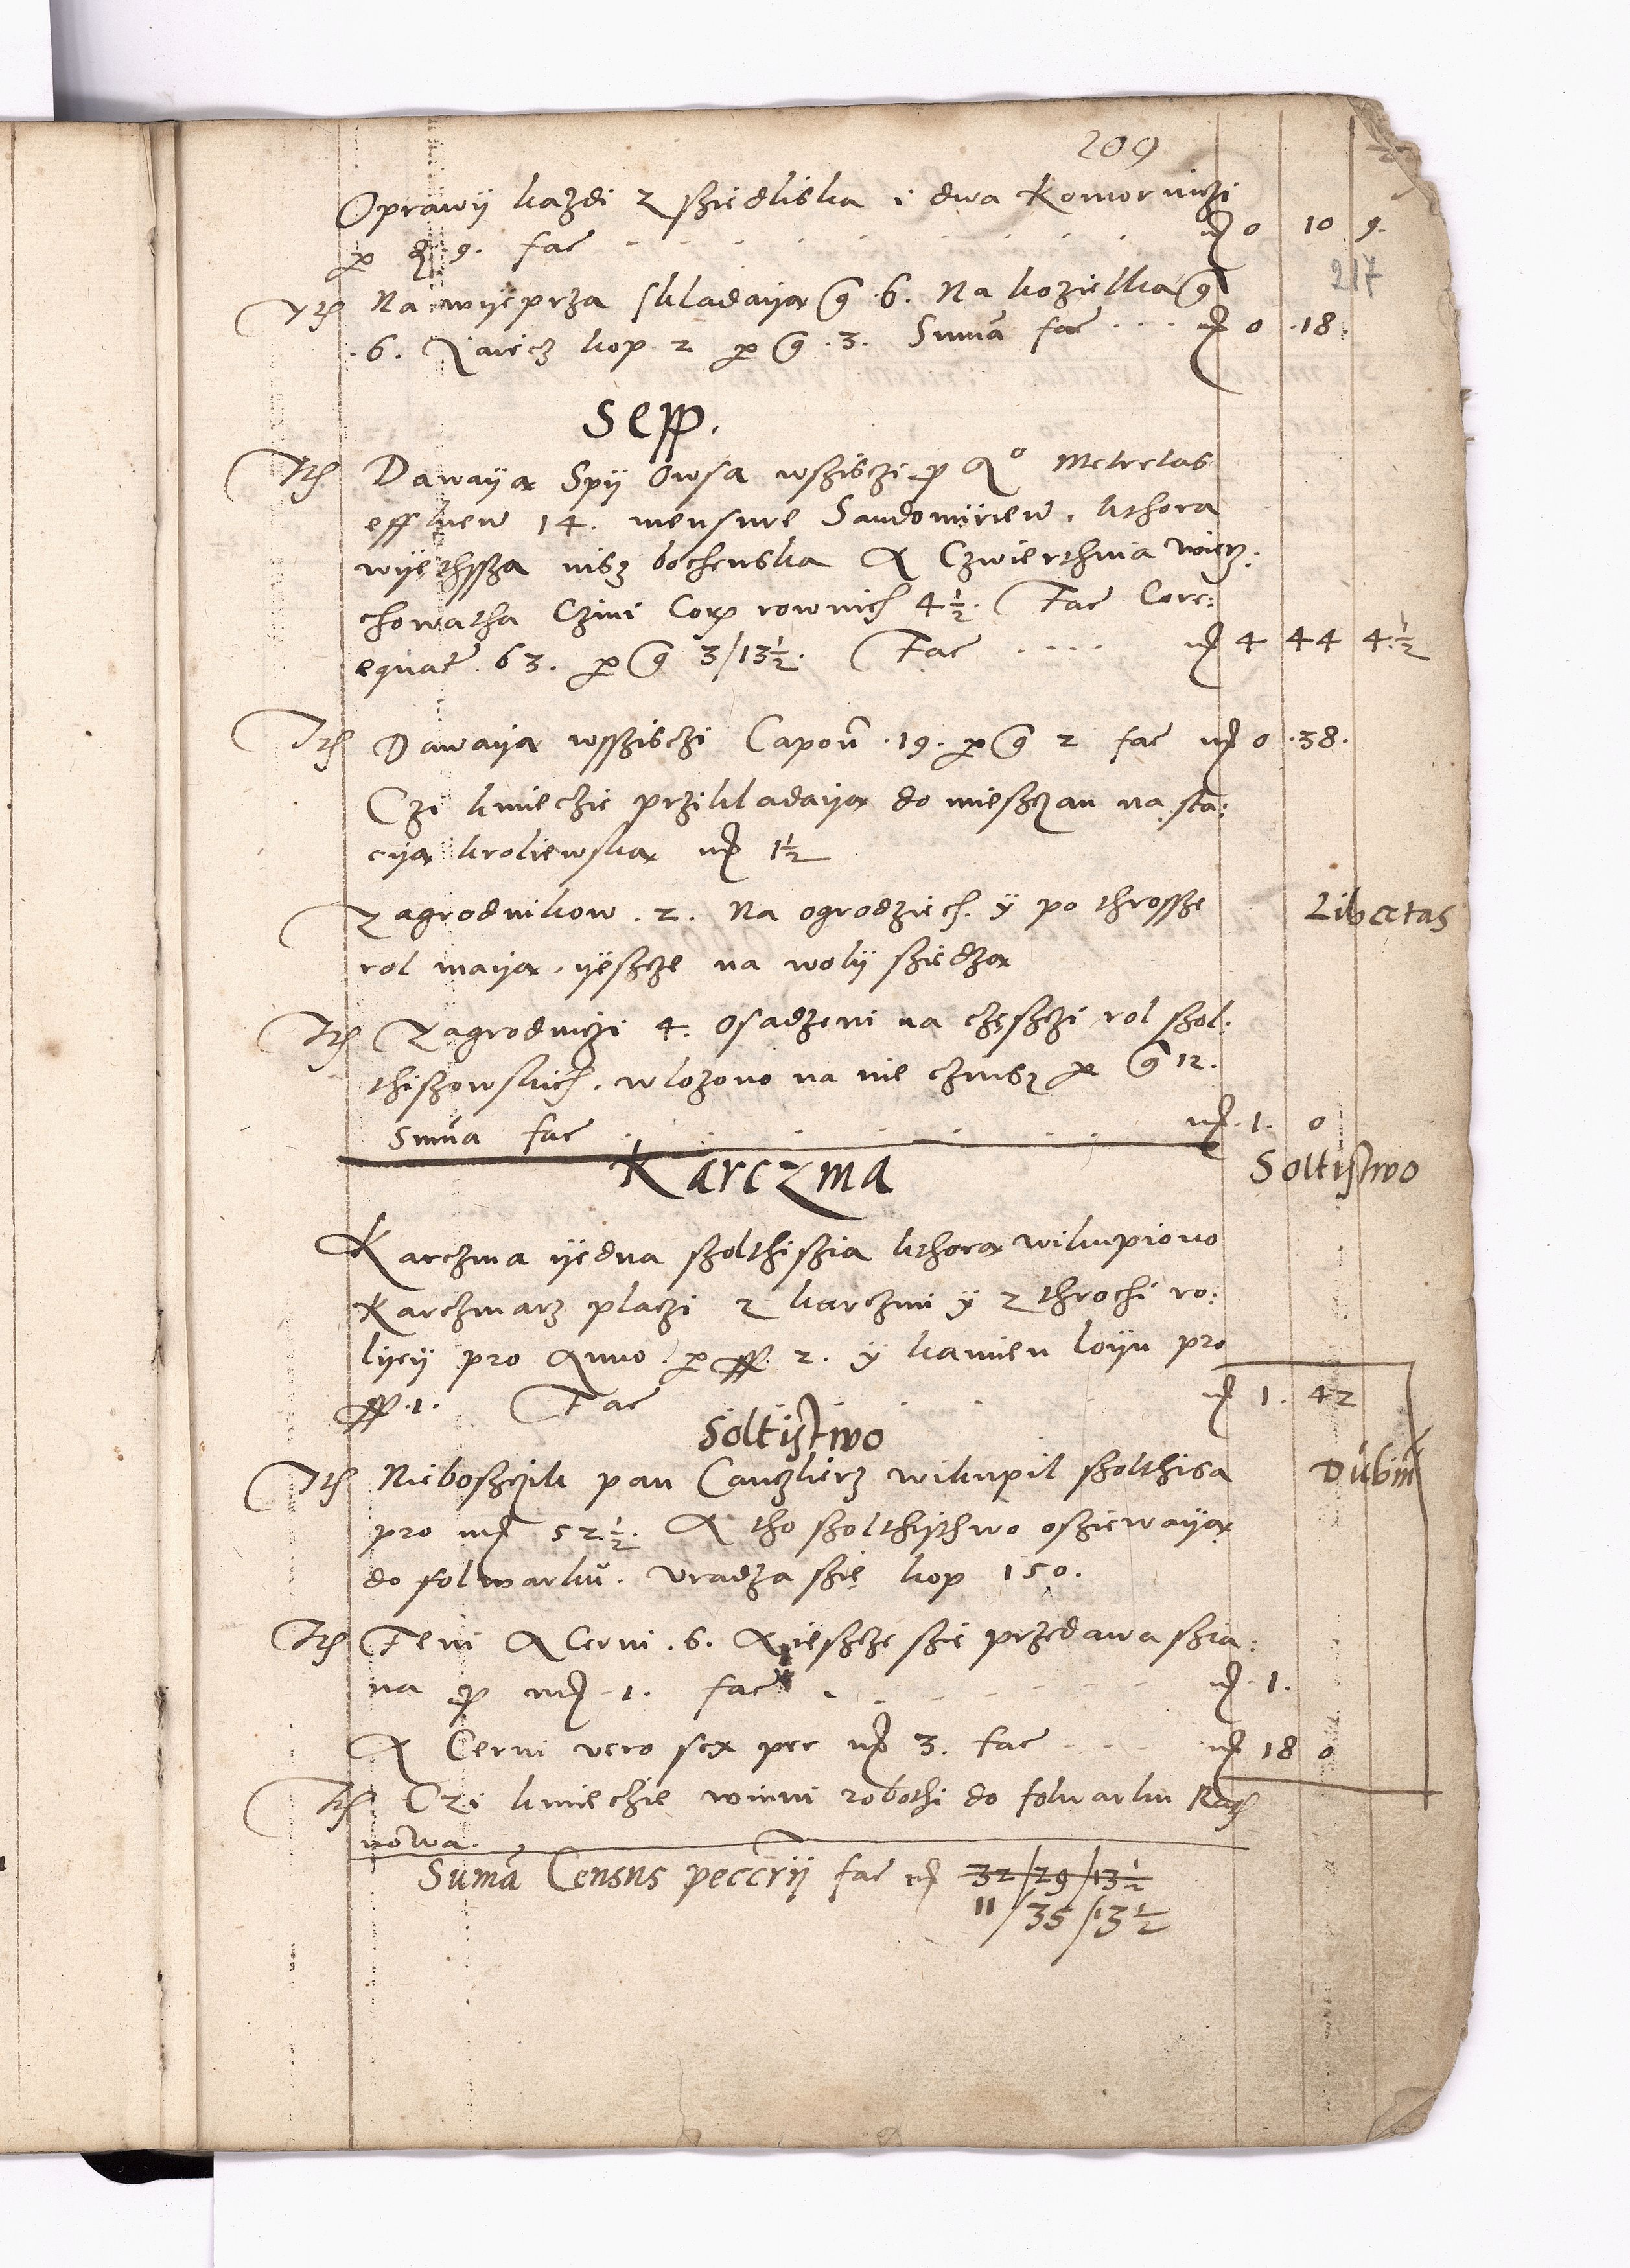 209
Oprawÿ kazdi z sziedliska i dwa Komorniczi
per d. 9. fac . . . . . . . . mr 0 10 9.
217
Ith Na wyeprza skladaya g. 6. Na kozielka g
.6. Jaiecz kop 2 per g. 3. Summa fac . . . mr 0 .18.
Sepp.
Ith Dawaya Spÿ Owsa wszisczi p A° Metretas
effluen 14. mensure Sandomirien, kthora
wyethssza nisz bochenska A Czwierthnia wierz:
chowatha Czini Corp rownich 4½. Fac Core:
equat. 63. per g 3/13½. Fac . . . . mr 4 44 4½
Ith Dawaya wsszisczi Capon .19. per g 2 fac mr 0 .38.
Czi kmieczie przikladaya do mieszczan na sta:
cya kroliewska mr 1½
Zagrodnikow .2. Na ogrodziech. ÿ po throssze
rol maya, ÿeszcze na wolÿ sziedza
Libertas
Ith Zagrodniczi 4. osadzeni na czesczi rol szol:
thiszowskich. wlozono na nie czinsz per g 12.
Summa fac . . . . . . . mr .1. 0
Karczma
Soltistwo
Karczma yedna szolthiszia kthora wikupiono
Karczmarz placzi z karczmi ÿ z throchi ro:
lyey pro Anno. per ff. 2. ÿ kamien loyu pro
ff .1. Fac . . . mr 1. 42
Soltistwo
Ith Nieboszczik pan Canczlierz wikupil szolthisa
pro mr 52½. A tho szolthisthwo osziewaya
do folwarku. Vradza szię kop 150.
Dubiu
Ith Feni Acerui .6. A ieszcze szie przedawa szia:
na p mr 1. fac . . . . . . mr .1.
A Cerui vero sex per mr 3. fac . . . mr 18 0
Ith Czi kmieczie winni robothi do folwarku Rach
nowa.
Summa Census peccrÿ fac mr 32/29/13½
11/35/13½